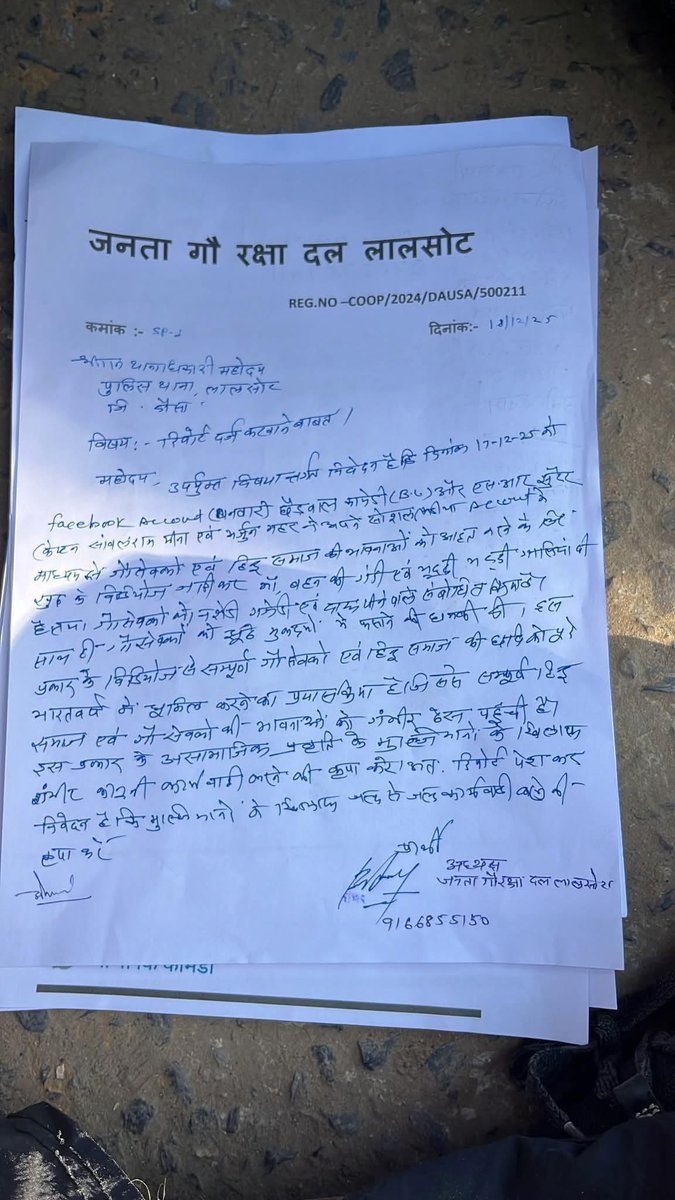 जनता गौ रक्षा दल लालसोट
REG.NO –COOP/2024/DAUSA/500211
कमांक :- SP-1
दिनांक:- 18/12/25
श्रीमान थानाधिकारी महोदय
पुलिस थाना, लालसोट
जि. दौसा
विषय:- रिपोर्ट दर्ज करवाने बाबत।
महोदय, उपर्युक्त विषयान्तर्गत निवेदन है कि दिनांक 17-12-25 को
facebook Account (बनवारी बैंडवाल कॉमेडी (B.C) और एस.आर. सुपर
सांवलराम मीना एवं अर्जुन महर ने अपने सोशल मीडिया Account के
माध्यम से गौ सेवकों एवं हिन्दू समाज की भावनाओं को आहत करने के लिए
के विडियोज कर माँ, बहन की गंदी एवं भद्दी भद्दी गालियां दी
है तथा गौ सेवकों को एवं पीने वाले संबोधित किया है।
साथ ही गौ सेवकों को झूठे मुकदमों में फसाने की धमकी दी। इस
प्रकार के विडियोज से सम्पूर्ण गौ सेवकों एवं हिन्दू समाज की छवि को
भारतवर्ष में धूमिल करने का प्रयास किया है। जिससे सम्पूर्ण हिन्दू
समाज एवं गौ सेवकों की भावनाओं को गंभीर ठेस पहुँची है।
इस प्रकार के असामाजिक प्रवृति के के खिलाफ
कानूनी कार्यवाही करने की कृपा करे। अतः रिपोर्ट पेश कर
निवेदन है कि के खिलाफ जल्द से जल्द कार्यवाही करने की
कृपा करें
प्रार्थी
अध्यक्ष
जनता गौ रक्षा दल लालसोट
9166855150